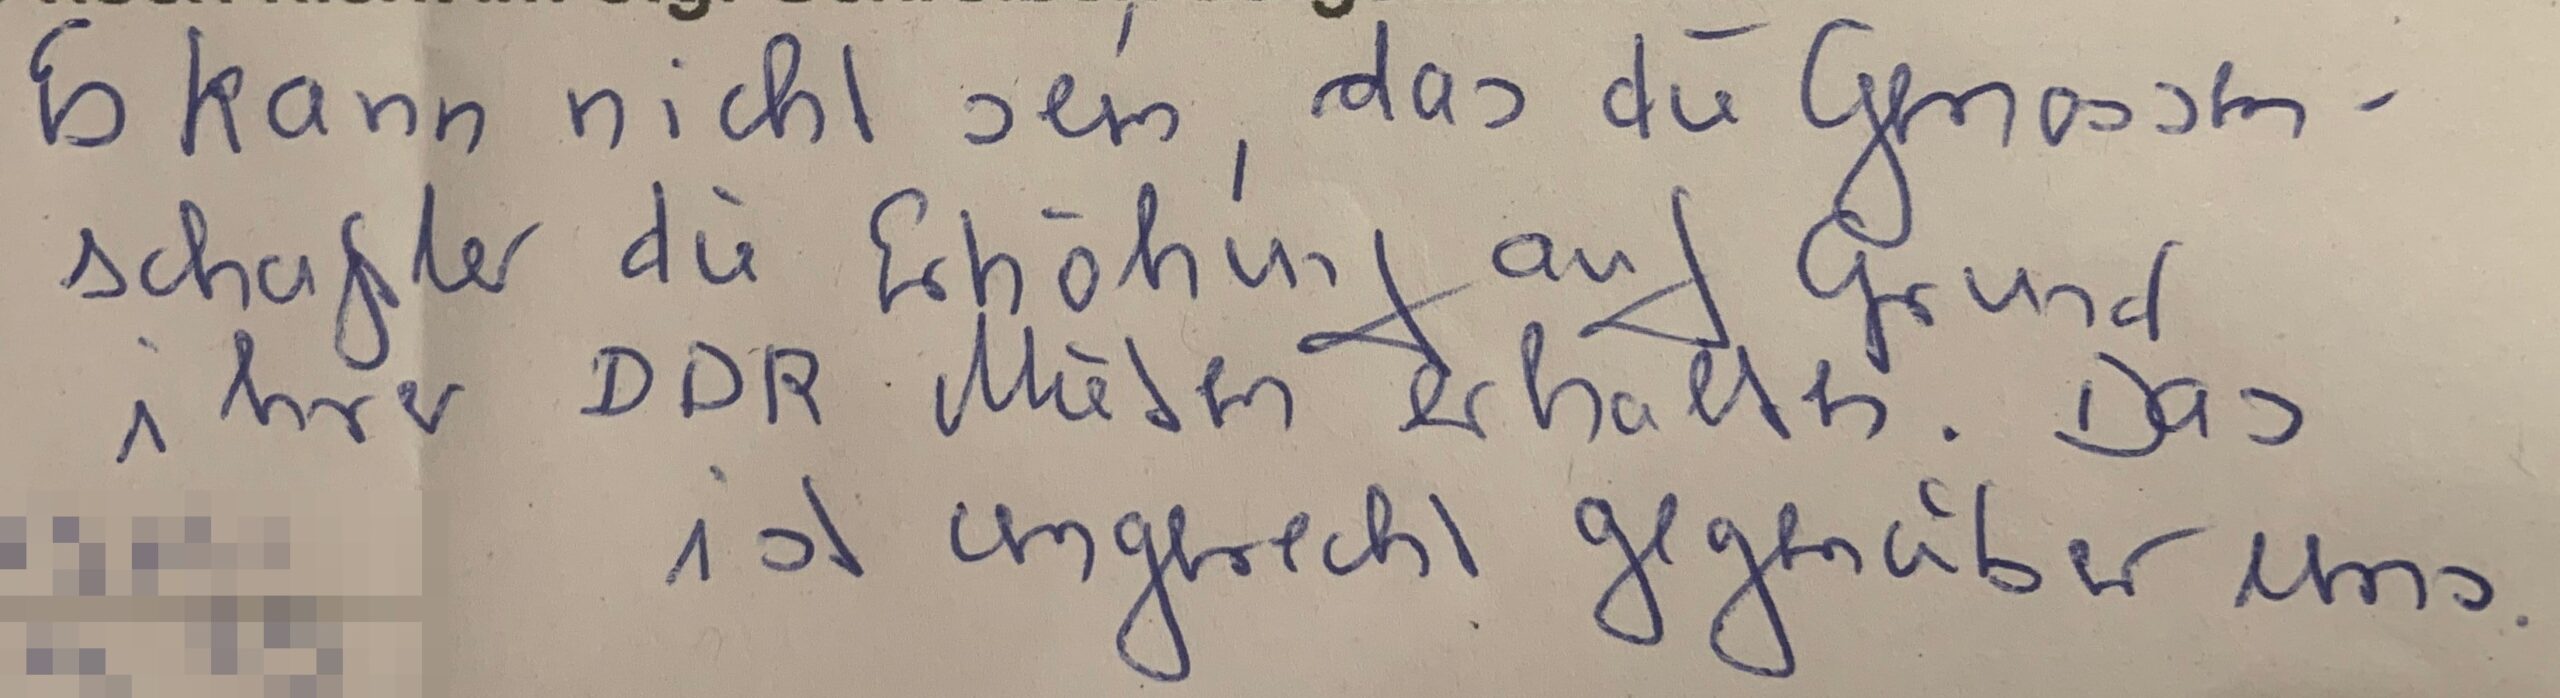 Es kann nicht sein, das die Genossen-
schaftler die Erhöhung auf Grund
ihrer DDR Mieten erhalten. Das
ist ungerecht gegenüber uns.